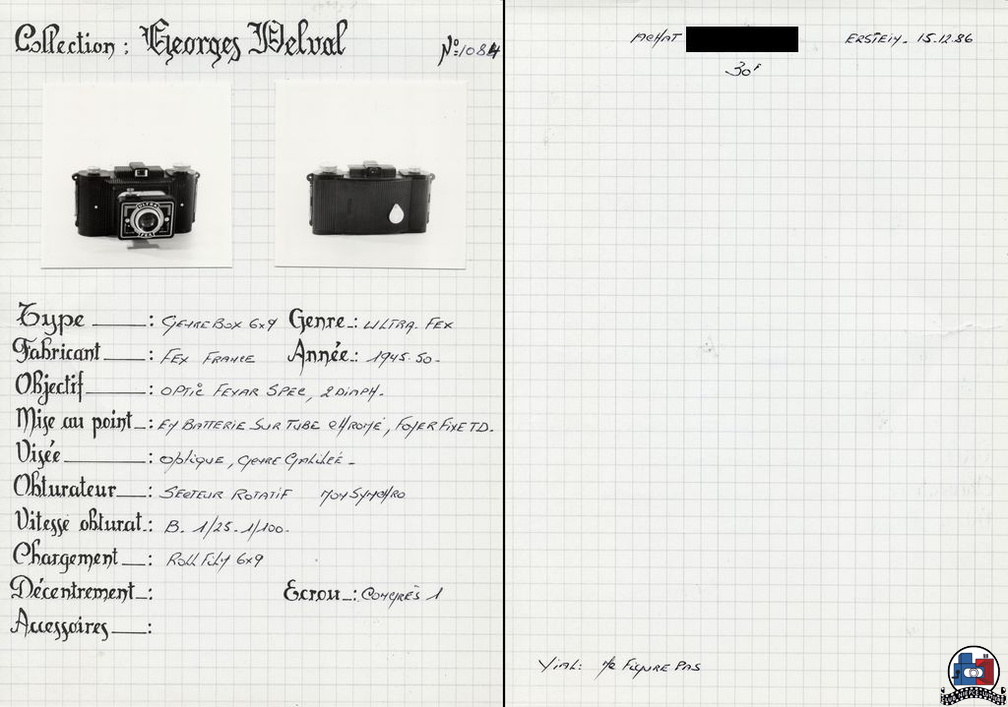 Collection : Georges Delval
N°: 1084
ULTRA
Type : GENRE BOX 6x9 Genre : ULTRA. FEX
Fabricant : FEX FRANCE Année : 1945.50.
Objectif : OPTIC FEXAR SPEC, 2 DIAPH.
Mise au point : EN BATTERIE SUR TUBE CHROMÉ, FOYER FIXE TD.
Visée : Optique, GENRE GALILÉE.
Obturateur : SECTEUR ROTATIF NON SYNCHRO
Vitesse obturat. : B. 1/25. 1/100.
Chargement : ROLL FILM 6x9
Décentrement :
Ecrou : CONGRÈS 1
Accessoires :
ACHAT ERSTEIN. 15.12.86
30F
VIAL: NE FIGURE PAS